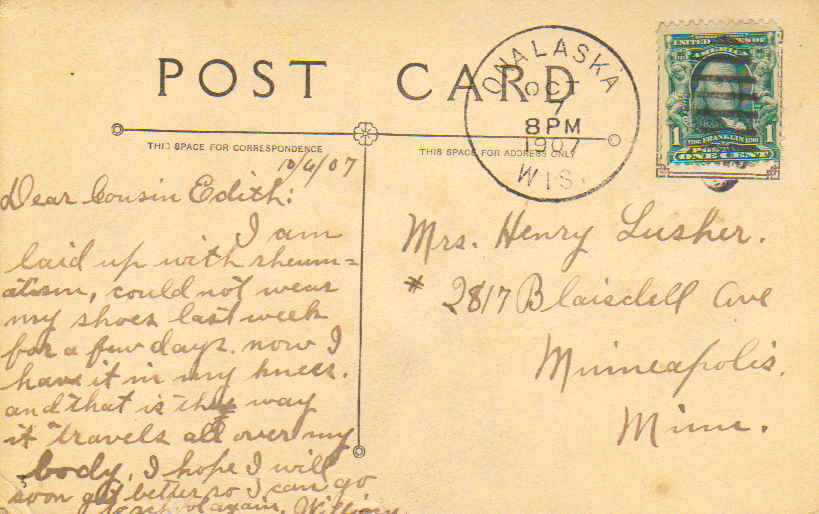 POST CARD
THIS SPACE FOR CORRESPONDENCE
THIS SPACE FOR ADDRESS ONLY
ONALASKA
OCT
7
8 PM
1907
WIS.
UNITED STATES OF
AMERICA
1 FRANKLIN 1
ONE CENT
10/6/07
Dear Cousin Edith:
I am
laid up with rheum=
atism, could not wear
my shoes last week
for a few days. now I
have it in my knees.
and that is the way
it travels all over my
body. I hope I will
soon get better so I can go
to school again.
Mrs. Henry Lusher.
* 2817 Blaisdell Ave
Minneapolis.
Minn.